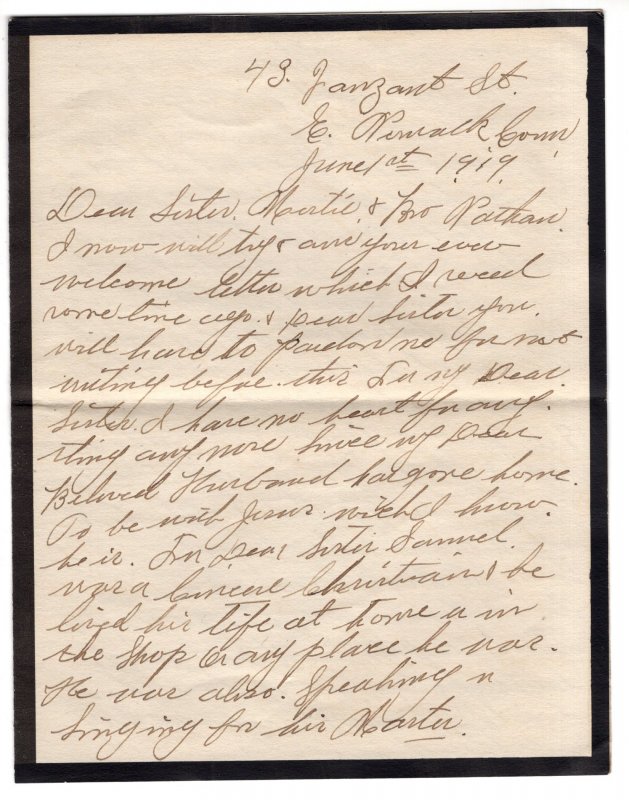 43. Vanzant St.
E. Norwalk Conn
June 1st 1919.
Dear Sister. Martie. & Bro Nathan.
I now will try & ans your ever
welcome letter which I reced
some time ago. & Dear Sister you.
will have to pardon me for not
writing before. this For my Dear.
Sister. I have no heart for any.
thing any more Since my Dear
Beloved Husband has gone home.
To be with Jesus. wich I know.
he is. For Dear Sister Samuel
was a Sincere Christain & he
lived his life at home & in
the Shop or any place he was.
He was also. Speaking &
Singing for his Master.